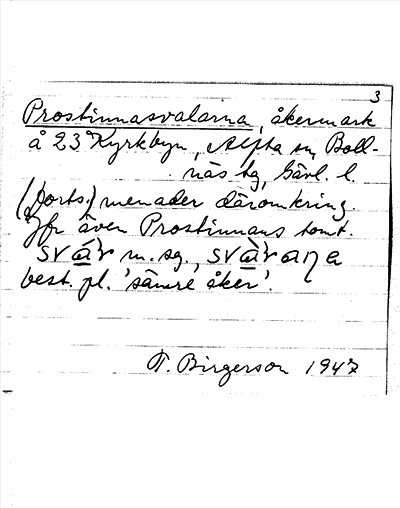 3
Prostinnasvalarna, åkermark
å 23 Kyrkbyn, Alfta sn, Boll-
näs tg, Gävl. l.
(Forts.) menader däromkring.
Jfr även Prostinnans tomt.
best. pl. 'sämre åker'.
T. Birgerson 1947